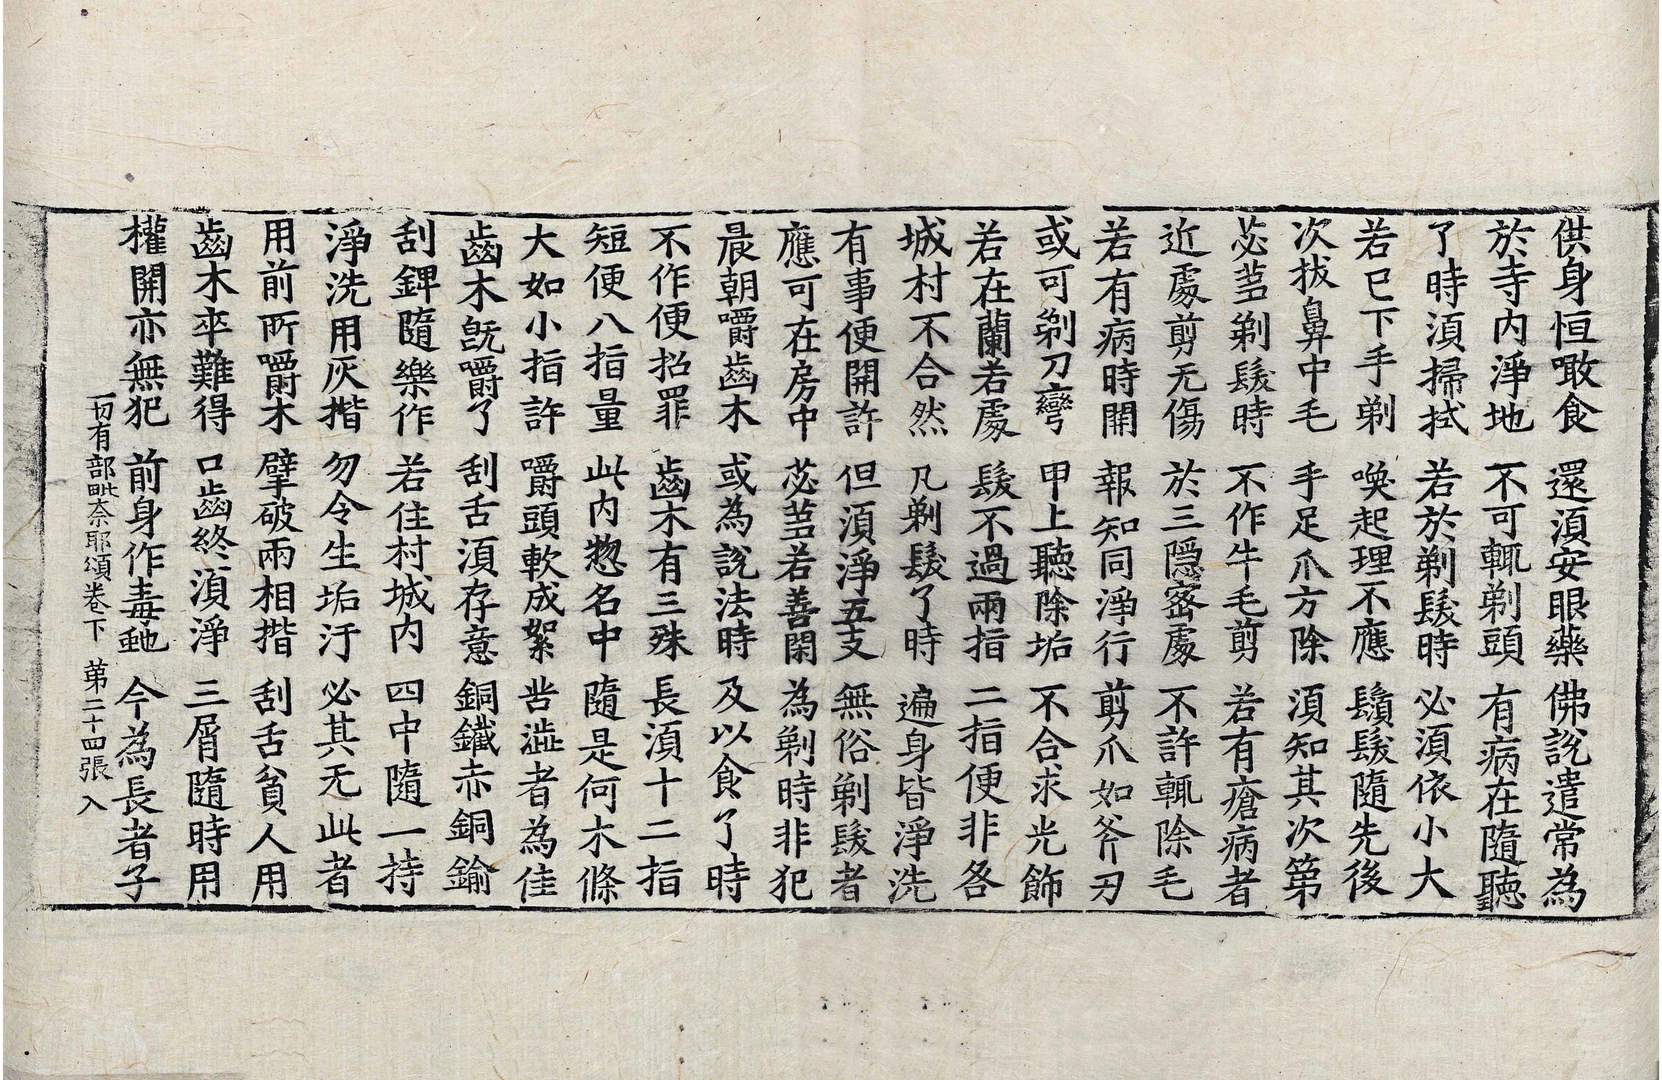 供身恒噉食 還湏安眼藥 佛說遣常為
於寺内淨地 不可輒剃頭 有病在隨聽
了時湏掃拭 若於剃髮時 必湏依小大
若已下手剃 喚起理不應 鬚髮隨先後
次拔鼻中毛 手足爪方除 湏知其次第
苾蒭剃髮時 不作牛毛剪 若有瘡病者
近處剪无傷 於三隱密處 不許輒除毛
若有病時開 報知同淨行 剪爪如斧刃
或可剃刀彎 甲上聽除垢 不合求光飾
若在蘭若處 髮不過兩指 二指便非各
城村不合然 凡剃髮了時 遍身皆淨洗
有事便開許 但湏淨五支 無俗剃髮者
應可在房中 苾蒭若善閑 為剃時非犯
晨朝嚼齒木 或為說法時 及以食了時
不作便招罪 齒木有三殊 長湏十二指
短便八指量 此内惣名中 隨是何木條
大如小指許 嚼頭軟成絮 苦澁者為佳
齒木旣嚼了 刮舌湏存意 銅鐵赤銅鍮
刮錍隨樂作 若住村城内 四中隨一持
淨洗用灰揩 勿令生垢汙 必其无此者
用前所嚼木 擘破兩相揩 刮舌貧人用
齒木卒難得 口齒終湏淨 三屑隨時用
權開亦無犯 前身作毒虵 今為長者子
一切有部毗奈耶頌卷下 第二十四張 入